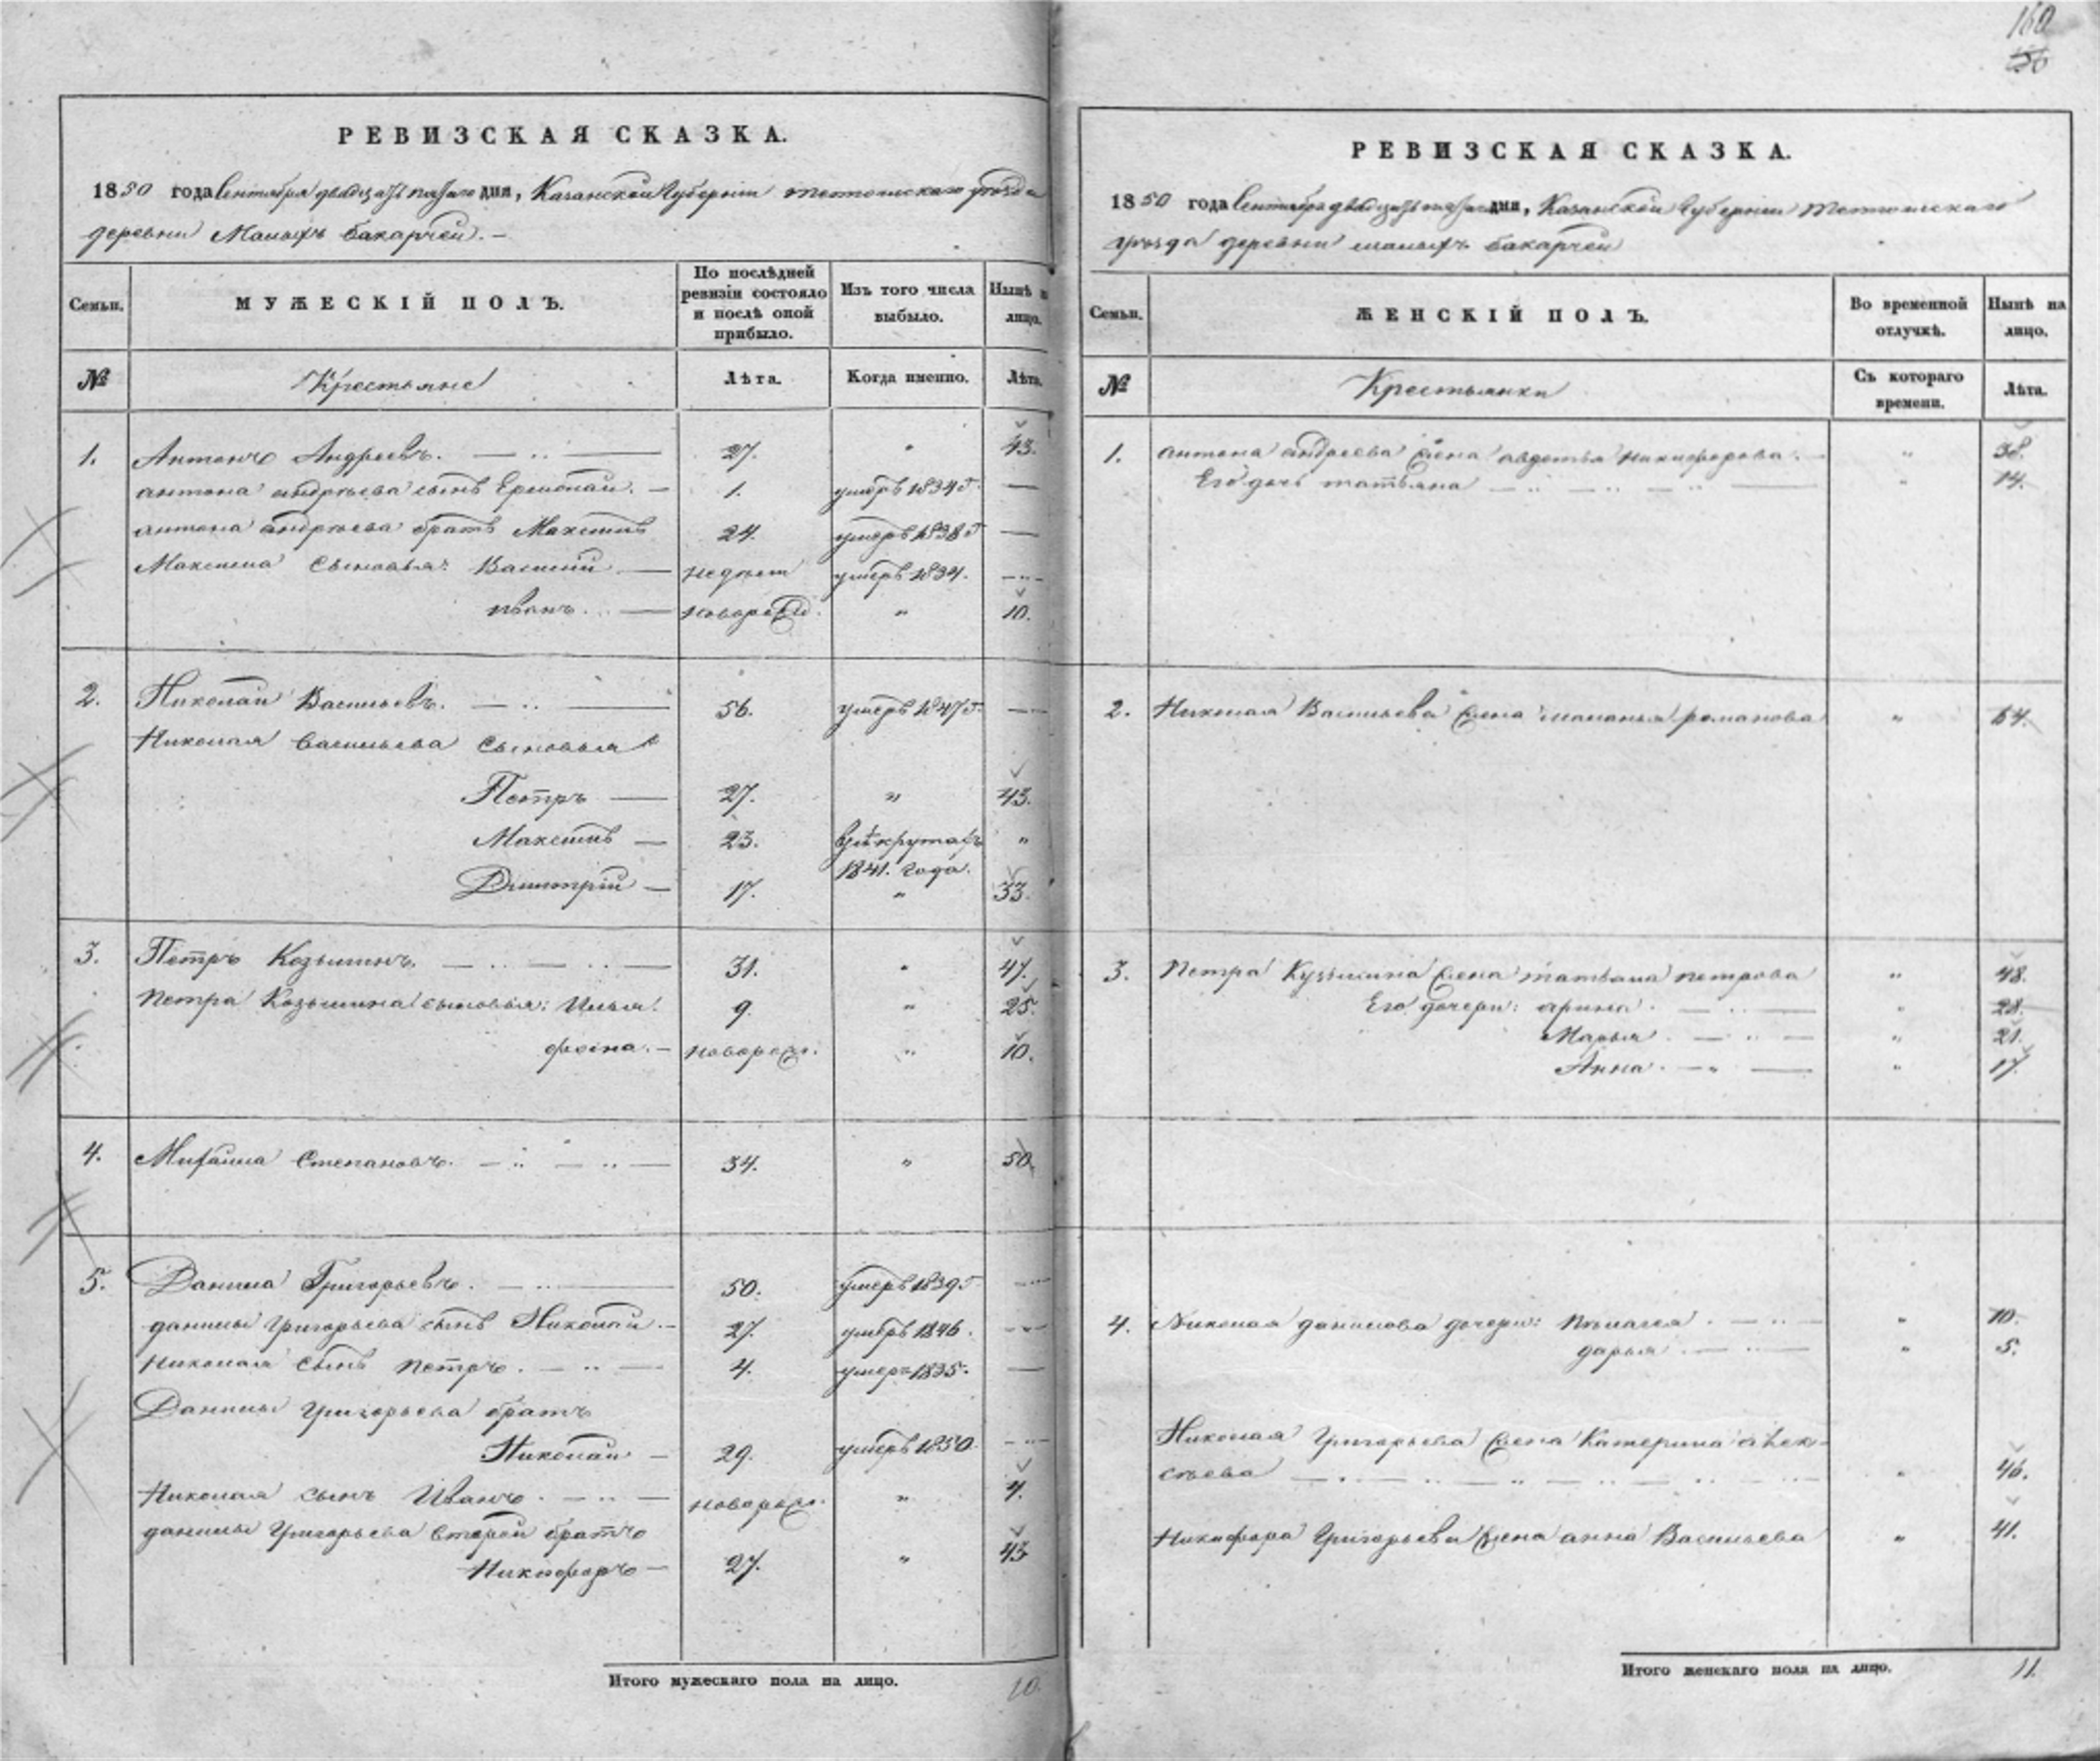 160
156
РЕВИЗСКАЯ СКАЗКА.
1850 года Сентября двадцать пятаго дня, Казанской Губерніи Тетюшскаго уѣзда
деревни Малыхъ Бакарчей. –
Семьи.
МУЖЕСКІЙ ПОЛЪ.
По послѣдней ревизіи состояло и послѣ оной прибыло.
Изъ того числа выбыло.
Нынѣ на лицо.
№
Крестьяне
Лѣта.
Когда именно.
Лѣта.
1. Антонъ Андреевъ. 27. " 43.
антона андрѣева сынъ Ермолай. 1. умеръ 1834 г. —
антона андрѣева братъ Максимъ 24. умеръ 1838 г —
Максима сыновья: Василий недѣл умеръ 1834. —
иванъ. новорожд. " 10.
2. Николай Васильевъ. 56. умеръ 1847 г. —
Николая васильева сыновья
Петръ — 27. " 43.
Максимъ — 23. в рѣкрутахъ "
1841. года.
Дмитрій — 17. " 33.
3. Петръ Козьминъ. 31. " 47.
петра Козьмина сыновья: Илья. 9. " 25.
фоина. — новорож. " 10.
4. Михайла Степановъ. 34. " 50.
5. Данила Григорьевъ. 50. умеръ 1839 г —
данилы григорьева сынъ Николай. — 27. умеръ 1846. —
николая сынъ петръ. 4. умеръ 1835. —
Данилы григорьева братъ
Николай — 29. умеръ 1850. —
Николая сынъ Иванъ. новорож. " 4.
данилы григорьева второй братъ
Никифоръ — 27. " 43
Итого мужескаго пола на лицо. 10.
РЕВИЗСКАЯ СКАЗКА.
1850 года Сентября двадцать пятаго дня, Казанской Губерніи Тетюшскаго
уѣзда деревни малыхъ бакарчей
Семьи.
ЖЕНСКІЙ ПОЛЪ.
Во временной отлучкѣ.
Нынѣ на лицо.
№
Крестьянки
Съ котораго времени.
Лѣта.
1. антона андреева жена авдотья никифорова. " 38.
Его дочь татьяна " 14.
2. Николая Васильева жена маланья романова " 64.
3. Петра Кузьмина жена татьяна петрова " 48.
Его дочери: арина. " 28.
Марья. " 21.
Анна. " 17.
4. Николая данилова дочери: пелагея. " 10.
дарья. " 5.
Николая григорьева жена Катерина алек-
сѣева " 46.
Никифора григорьева жена анна Васильева " 41.
Итого женскаго пола на лицо. 11.